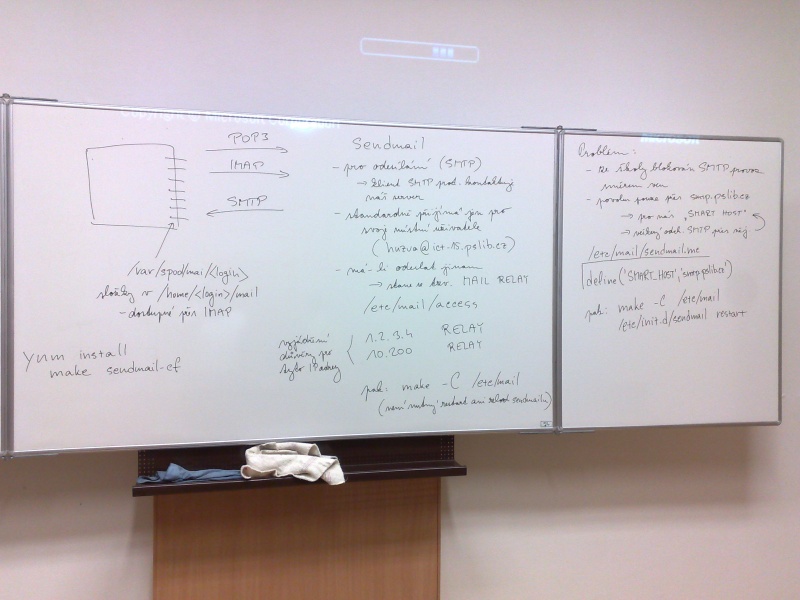 POP3
IMAP
SMTP
/var/spool/mail/<login>
složky v /home/<login>/mail
- dostupné přes IMAP
yum install
make sendmail-cf
Sendmail
- pro odesílání (SMTP)
→ klient SMTP prot. kontaktuje
náš server
- standardně přijímá jen pro
svoje místní uživatele
(huzva@ict-15.pslib.cz)
- má-li odesílat jinam
→ stane se tzv. MAIL RELAY
/etc/mail/access
vyjádření
důvěry pro
tyto IP adresy
1.2.3.4 RELAY
10.200 RELAY
pak: make -C /etc/mail
(není nutný restart ani reload sendmailu)
Problém:
- ze školy blokován SMTP provoz
směrem ven
- povolen pouze přes smtp.pslib.cz
→ pro nás "SMART HOST"
→ veškerý odch. SMTP přes něj
/etc/mail/sendmail.mc
define('SMART_HOST','smtp.pslib.cz')
pak: make -C /etc/mail
/etc/init.d/sendmail restart